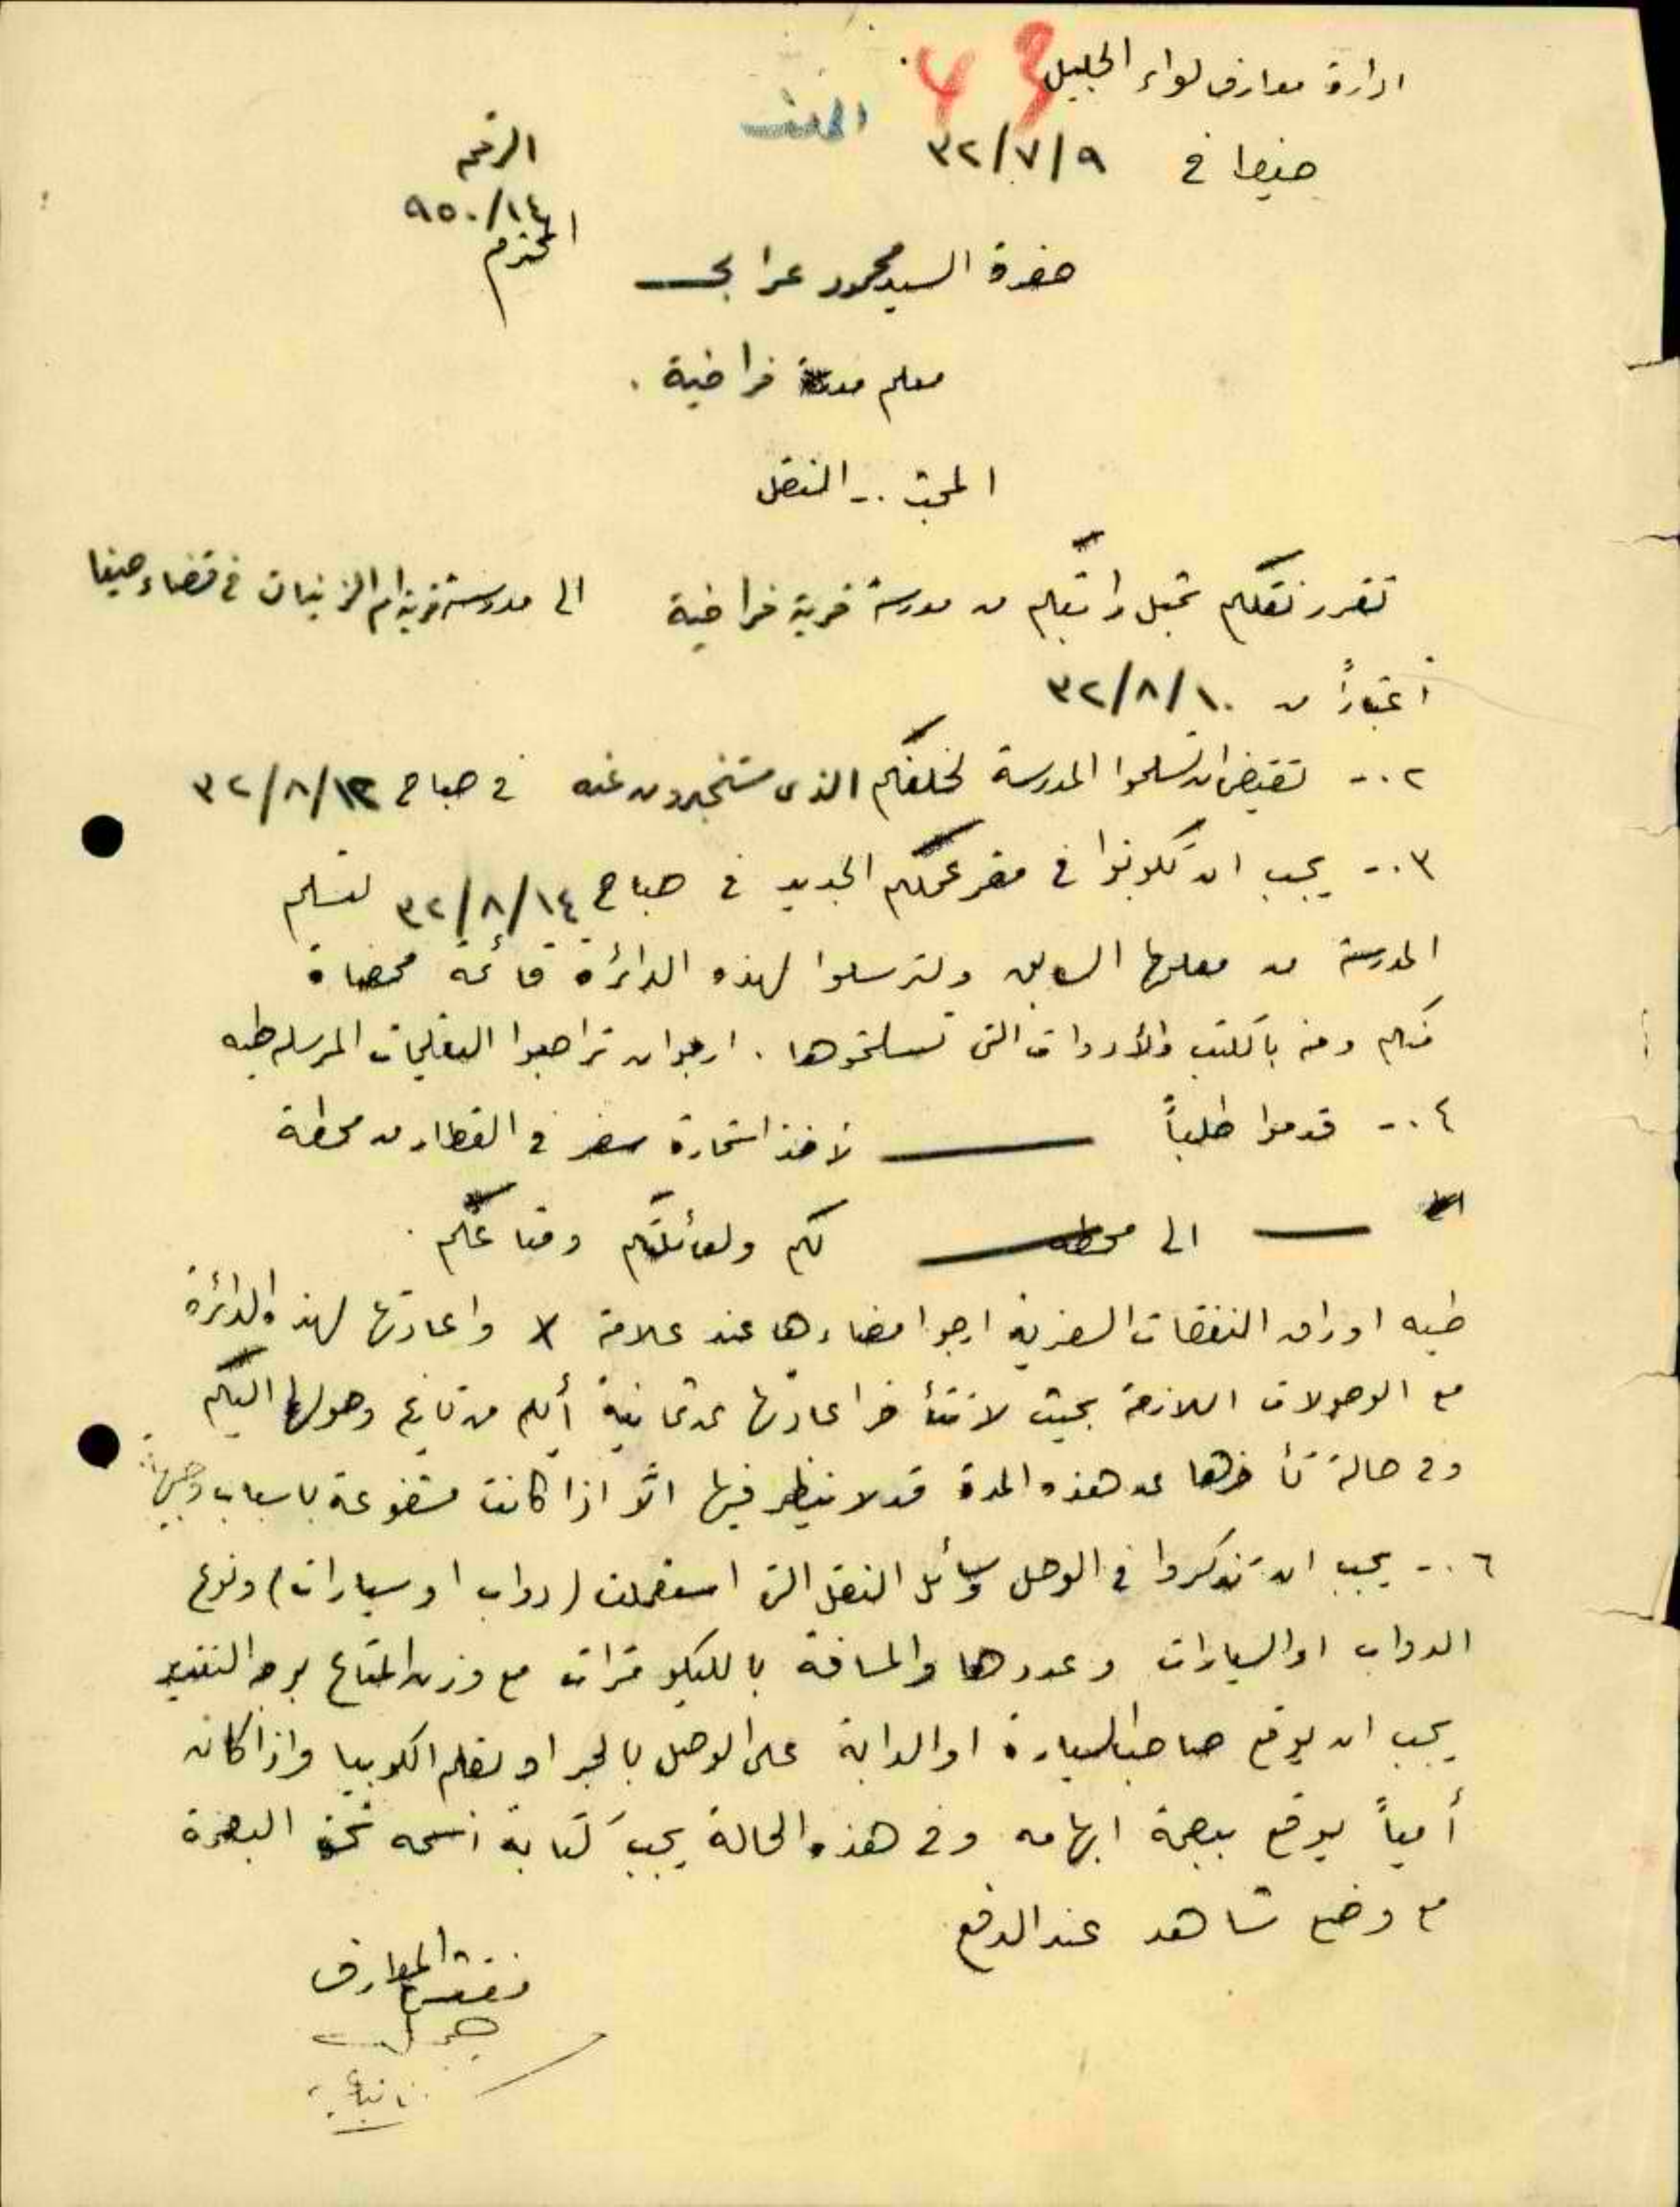 ادارة معارف لواء الجليل
حيفا في ٣٢/٧/٩
الرقم
٩٥٠/١٤
حضرة السيد محمود عرابي المحترم
معلم مدرسة فراضية .
المبحث .- النقل
تقرر نقلكم بمثل راتبكم من مدرسة قرية فراضية الى مدرسة قرية ام الزينات في قضاء حيفا
اعتباراً من ٣٢/٨/١٠
٢ .- تقتضي ان تسلموا المدرسة لخلفكم الذي ستخبرون عنه في صباح ٣٢/٨/١٢
٣ .- يجب ان تكونوا في مقر عملكم الجديد في صباح ٣٢/٨/١٤ لتسلم
المدرسة من معلمها السابق ولترسلوا لهذه الدائرة قائمة ممضاة
منكم ومنه بالكتب والأدوات التي تسلمتموها . ارجو ان تراجعوا التعليمات المرسلة طيه
٤ .- قدموا طلباً لأخذ استمارة سفر في القطار من محطة
الى محطة لكم ولعائلتكم ومتاعكم .
طيه اوراق النفقات السفرية ارجو امضاءها عند علامة X واعادتها لهذه الدائرة
مع الوصولات اللازمة بحيث لا تتأخر اعادتها عن ثمانية أيام من تاريخ وصولها اليكم
وفي حالة تأخرها عن هذه المدة قد لا ينظر فيها الّا اذا كانت مشفوعة باسباب وجيهة
٦ .- يجب ان تذكروا في الوصل وسائل النقل التي استعملت (دواب او سيارات) ونوع
الدواب او السيارات وعددها والمسافة بالكيلو مترات مع وزن المتاع بوجه التقدير
يجب ان يوقع صاحب السيارة او الدابة على الوصل بالحبر او بقلم الكوبيا واذا كان
أمياً يوقع ببصمة ابهامه وفي هذه الحالة يجب كتابة اسمه تحت البصمة
مع وضع شاهد عند الدفع
مفتش المعارف